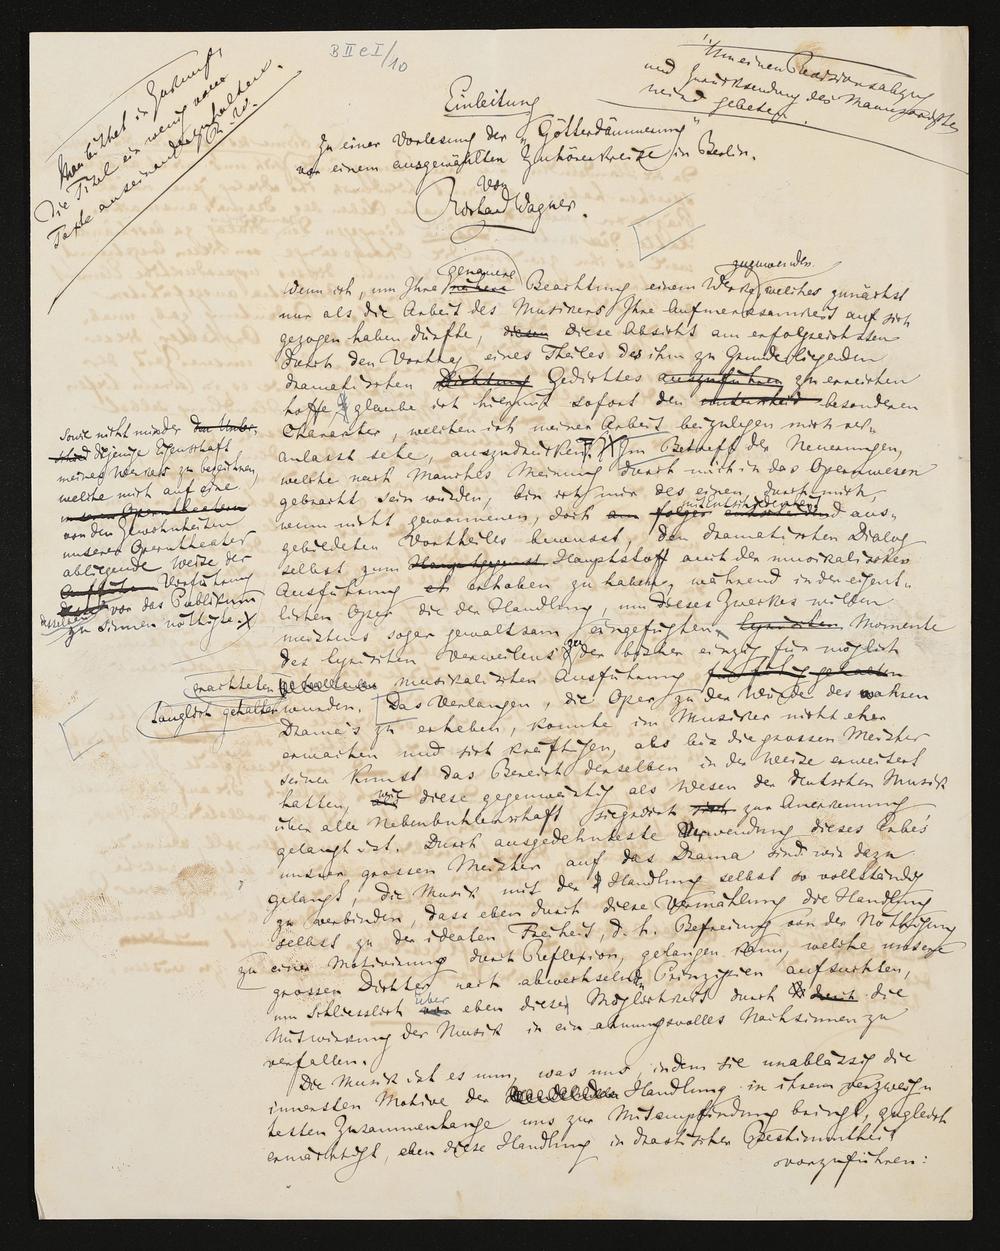 B II c I/10
Man bittet in Zukunft,
die Titel ein wenig vom
Texte auseinanderzuhalten.
R. W.
Um einen Revisionsabzug
und Zurücksendung des Manuscriptes
wird gebeten.
Einleitung
zu einer Vorlesung der "Götterdämmerung"
vor einem ausgewählten Zuhörerkreise in Berlin.
von
Richard Wagner.
genauere zuzuwenden
Wenn ich, um Ihre nähere Beachtung einem Werke, welches zunächst
nur als die Arbeit des Musikers Ihre Aufmerksamkeit auf sich
gezogen haben dürfte, diese Absicht am erfolgreichsten
durch den Vortrag eines Theiles des ihm zu Grunde liegenden
dramatischen Dichtung Gedichtes auszuführen zu erreichen
hoffe, glaube ich hiermit sofort den Unterschied besonderen
Charakter, welchen ich meiner Arbeit beizulegen mich ver-
anlasst sehe, auszudrücken X Im Betreff der Neuerungen,
welche nach Manches Meinung durch mich in das Opernwesen
gebracht sein würden, bin ich mir des einen, durch mich,
mit Entschiedenheit
wenn nicht gewonnenen, doch aus-
gebildeten Vortheiles bewusst, den dramatischen Dialog
selbst zum Hauptstoff auch der musikalischen
Ausführung erhoben zu haben, während in der eigent-
lichen Oper die der Handlung, um dieses Zweckes willen
meistens sogar gewaltsam eingefügten, lyrischen Momente
des lyrischen Verweilens zu der bisher einzig für möglich
erachteten musikalischen Ausführung
tauglich gehalten wurden. Das Verlangen, die Oper zu der Würde des wahren
Drama's zu erheben, konnte im Musiker nicht eher
erwachen und sich kräftigen, als bis die grossen Meister
seiner Kunst das Bereich derselben in der Weise erweitert
hatten, wie diese gegenwärtig als Wesen der deutschen Musik
über alle Nebenbuhlerschaft siegreich zur Anerkennung
gelangt ist. Durch ausgedehnteste Verwendung dieses Erbe's
unsrer grossen Meister auf das Drama sind wir dazu
gelangt, die Musik mit der Handlung selbst so vollständig
zu verbinden, dass eben durch diese Vermählung die Handlung
selbst zu der idealen Freiheit, d. h. Befreiung von der Nöthigung
zu einer Motivirung durch Reflexion, gelangen kann, welche unsere
grossen Dichter nach abwechselnden Prinzipien aufsuchten,
um schliesslich über eben diese Möglichkeit durch die
Mitwirkung der Musik in ein ahnungsvolles Nachsinnen zu
verfallen.
Die Musik ist es nun, was uns, indem sie unablässig die
innersten Motive der Handlung in ihrem verzweig-
testen Zusammenhange uns zur Mitempfindung bringt, zugleich
ermächtigt, eben diese Handlung in drastischer Bestimmtheit
vorzuführen:
Sowie nicht minder den Unter-
schied diejenige Eigenschaft
meines Werkes zu bezeichnen,
welche mich auf eine
von den Gewohnheiten
unserer Operntheater
abliegende Weise der
Vorführung
desselben vor das Publikum
zu sinnen nöthigte. X